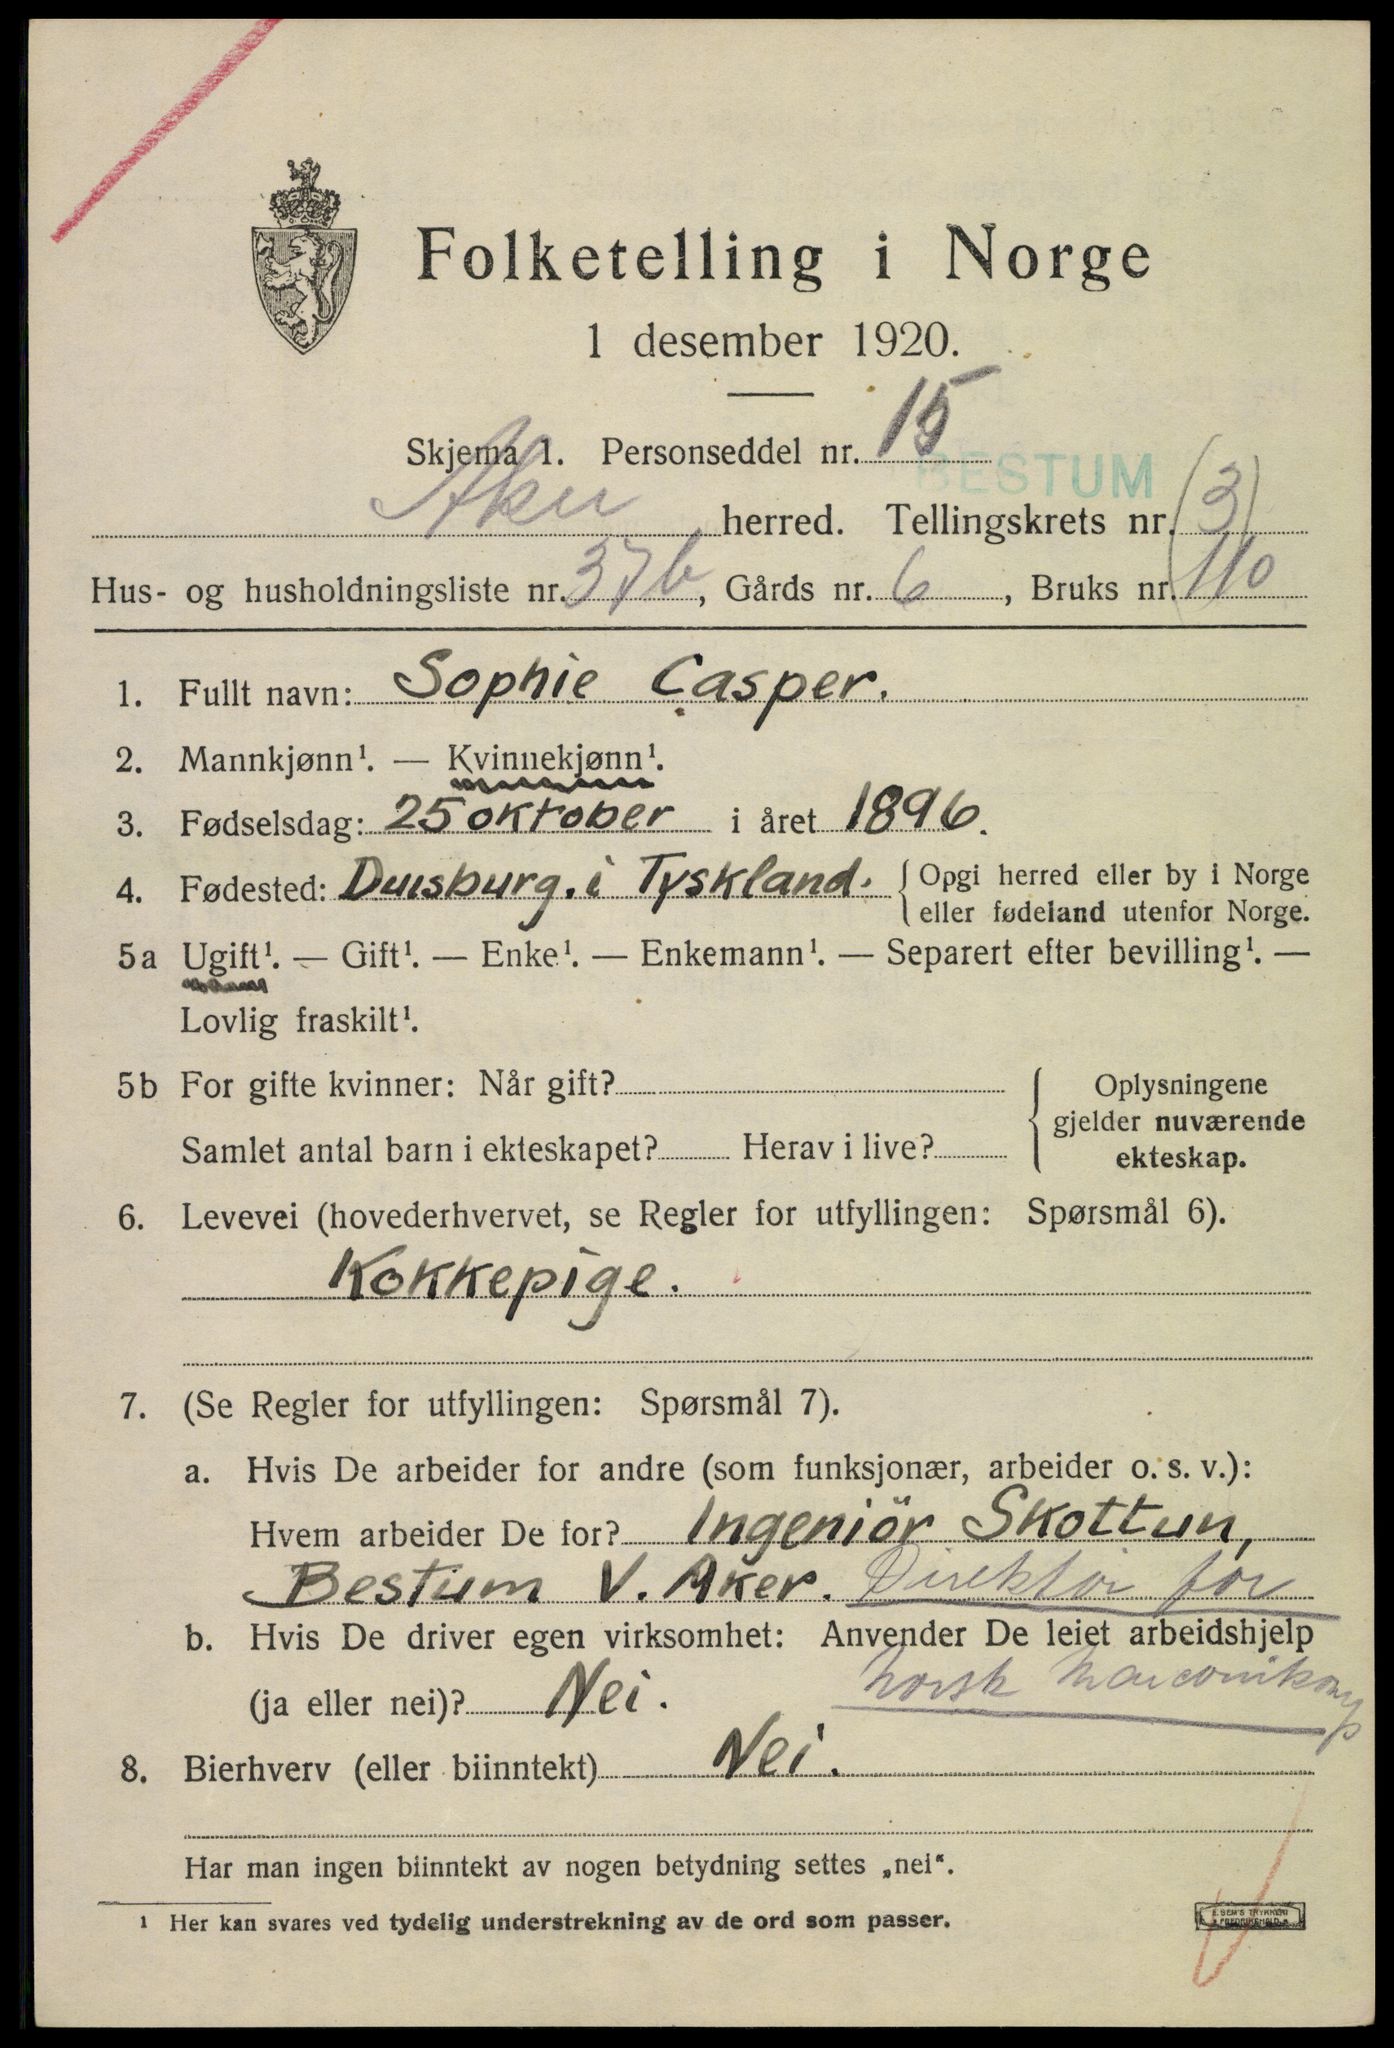 Folketelling i Norge
1 desember 1920.
Skjema 1. Personseddel nr. 15
BESTUM
Aker herred. Tellingskrets nr. (3)
Hus- og husholdningsliste nr. 37b, Gårds nr. 6, Bruks nr. 110
1. Fullt navn: Sophie Casper.
2. Mannkjønn¹. — Kvinnekjønn¹.
3. Fødselsdag: 25 oktober i året 1896.
4. Fødested: Duisburg. i Tyskland. { Opgi herred eller by i Norge
eller fødeland utenfor Norge.
5a Ugift¹. — Gift¹. — Enke¹. — Enkemann¹. — Separert efter bevilling¹. —
Lovlig fraskilt¹.
5b For gifte kvinner: Når gift? { Oplysningene
gjelder nuværende
Samlet antal barn i ekteskapet? Herav i live? ekteskap.
6. Levevei (hovederhvervet, se Regler for utfyllingen: Spørsmål 6).
Kokkepige.
7. (Se Regler for utfyllingen: Spørsmål 7).
a. Hvis De arbeider for andre (som funksjonær, arbeider o. s. v.):
Hvem arbeider De for? Ingeniör Skottun,
Bestum V. Aker. Direktör for
b. Hvis De driver egen virksomhet: Anvender De leiet arbeidshjelp
norsk Marconikomp
(ja eller nei)? Nei.
8. Bierhverv (eller biinntekt) Nei.
Har man ingen biinntekt av nogen betydning settes „nei“.
¹ Her kan svares ved tydelig understrekning av de ord som passer.
E. SEM'S TRYKKERI
FREDRIKSHALD